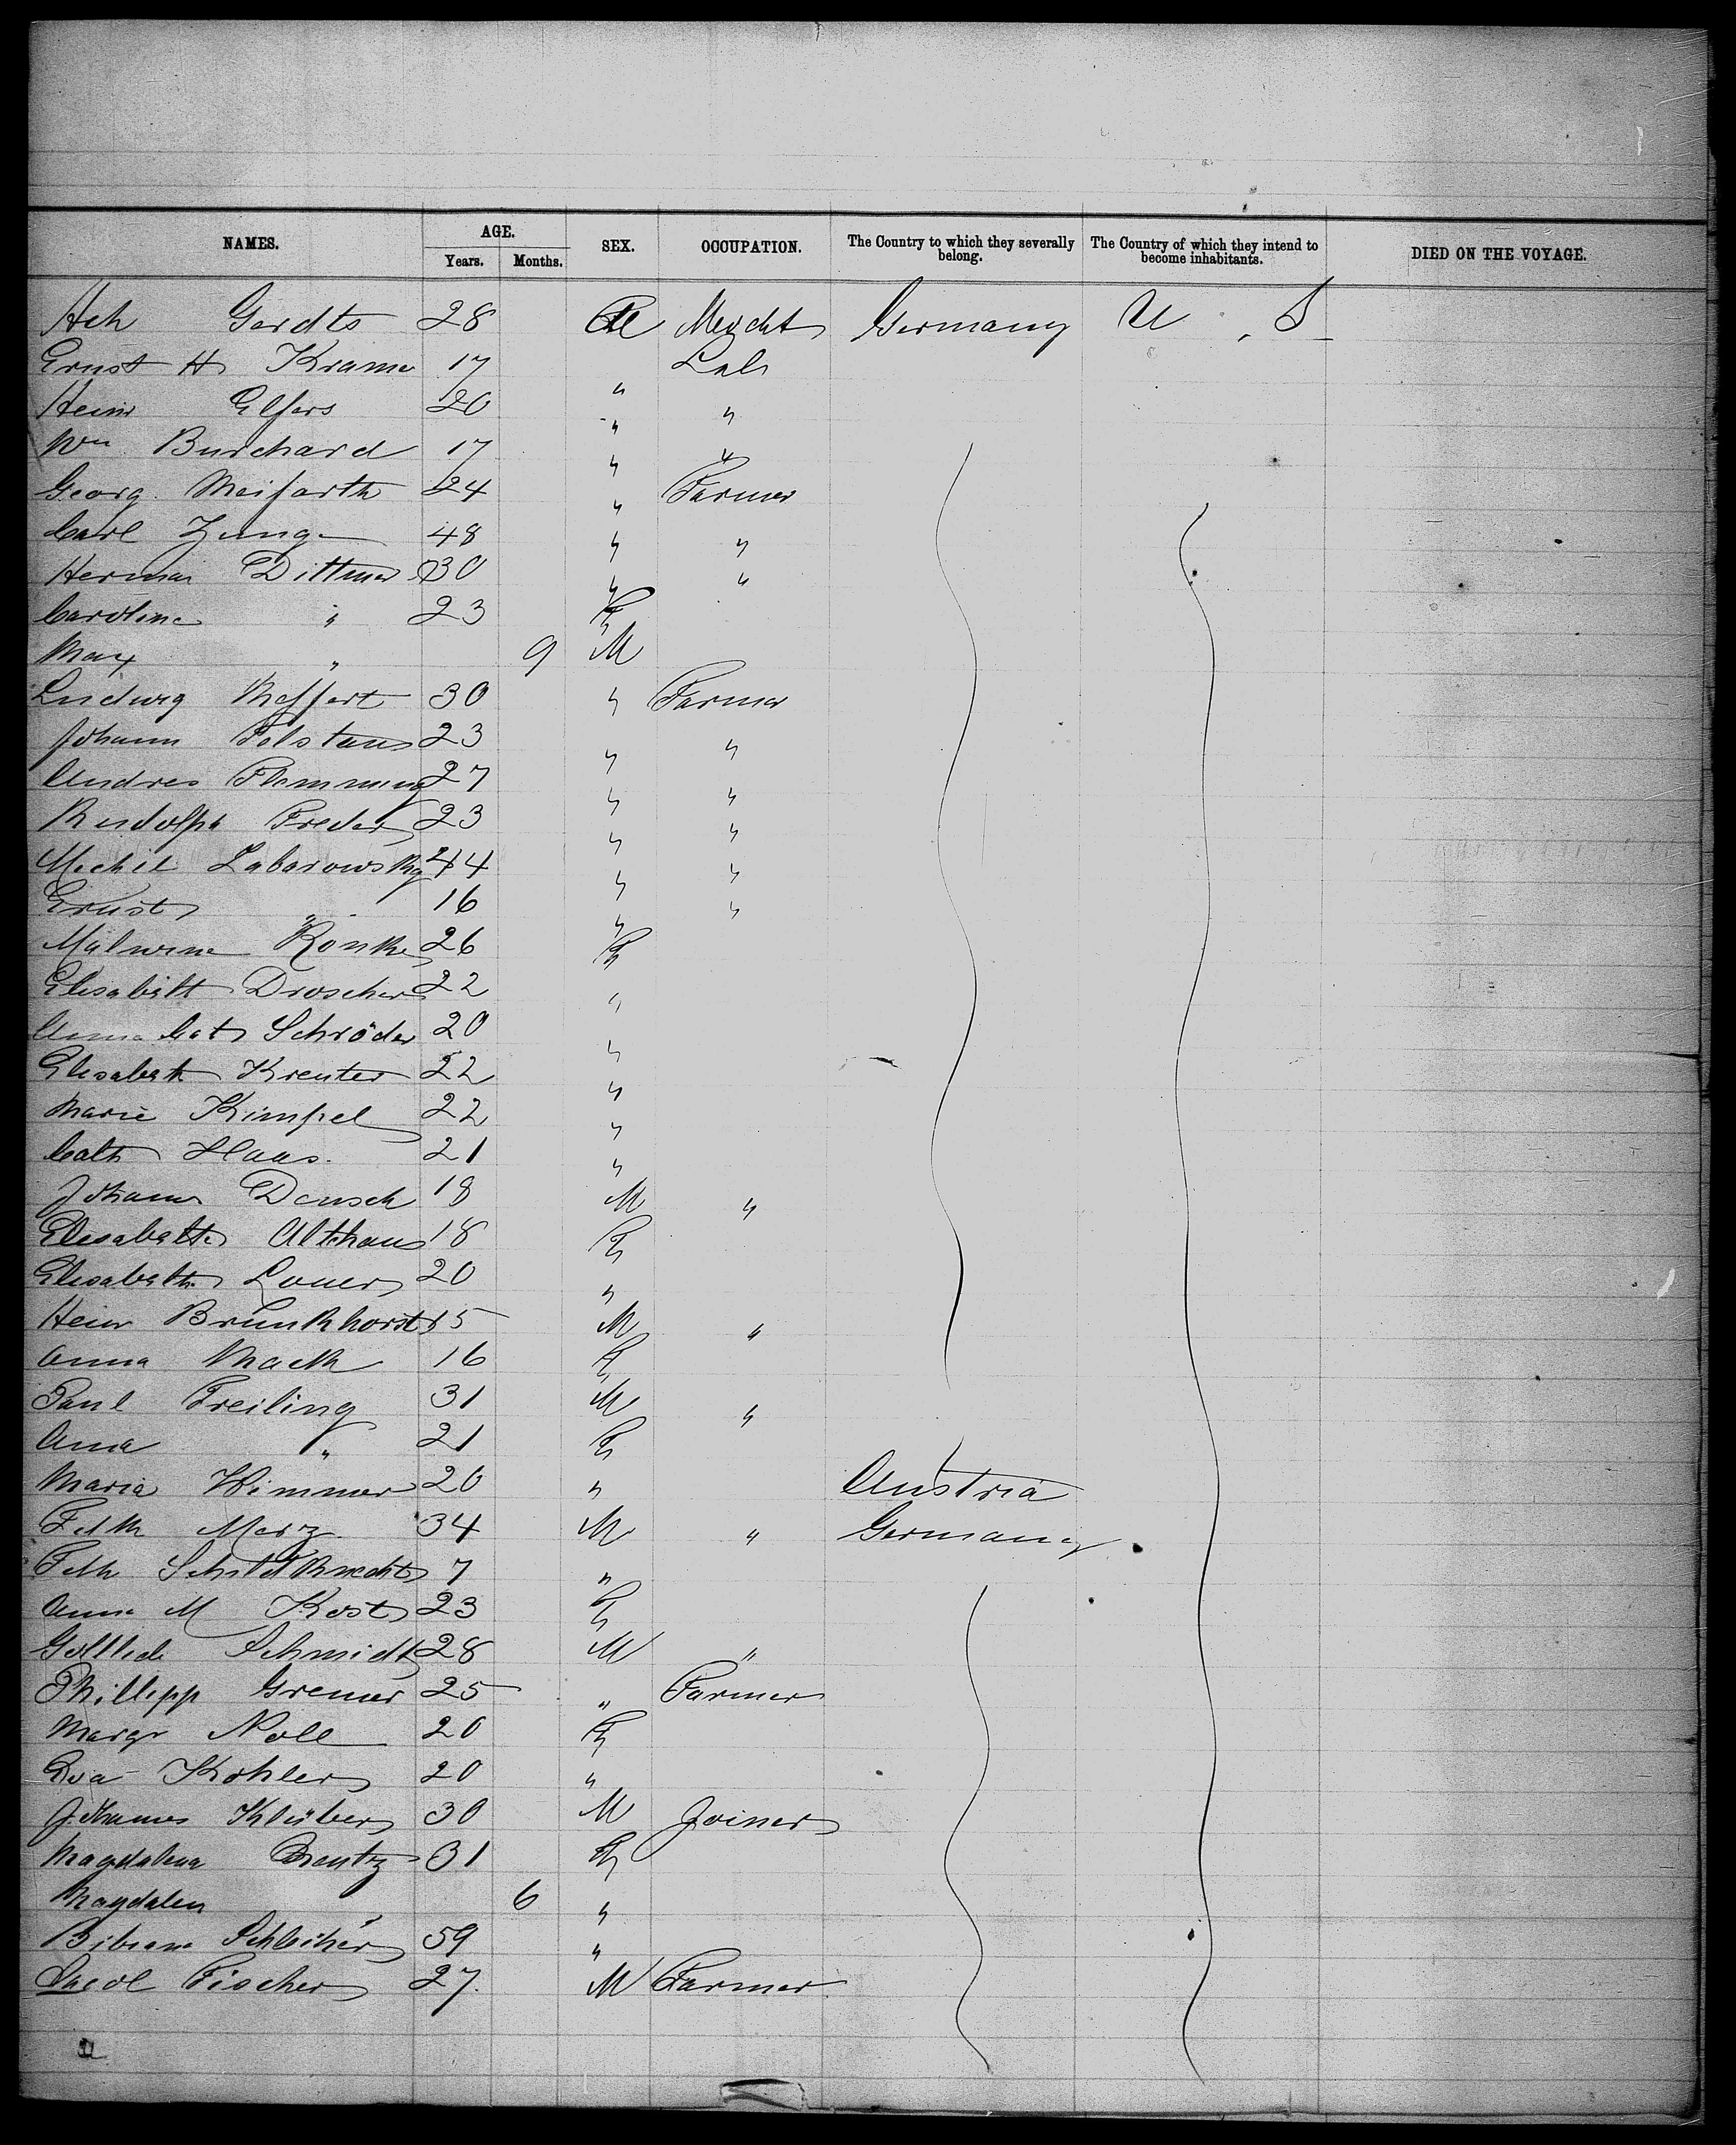 NAMES. AGE. Years. Months. SEX. OCCUPATION. The Country to which they severally belong. The Country of which they intend to become inhabitants. DIED ON THE VOYAGE.
Gerdts 28 Mercht Germany U. S
Ernst H Krame 17 " Lab
Heinr Elfers 20 " "
Wm Burchard 17 " "
Georg Meifarth 24 " Farmer
Carl Junge 48 " "
Herman Dittmer 30 " "
Caroline " 23 F
Max " 9 M
Ludwig Meffert 30 " Farmer
Johann 23 " "
Andres Flemming 27 " "
Rudolph Freder 23 " "
Michel Labarowsky 44 " "
Ernst " 16 " "
Ronke 26 F
Elisabeth Droscher 22 "
Anna Cath Schröder 20 "
Elisabeth Kreuter 22 "
Marie Kimpel 22 "
Cath Haas. 21 "
Johann Densch 18 M "
Elisabeth Althaus 18 F
Elisabeth Louer 20 "
Heinr Brunkhorst 15 M "
Anna Mack 16 F
Paul Freiling 31 M "
Anna " 21 F
Maria Wimmer 20 " Austria
Merz 34 M " Germany
Schildknecht 7 "
Anna M Kost 23 F
Gottlieb Schmidt 28 M "
Phillipp Gremer 25 " Farmer
Margr Noll 20 F
Eva Kohler 20 "
Johannes Klüber 30 M Joiner
Magdalena 31 F
Magdalen " 6 "
Schleicher 59 "
Jacob Fischer 27. M Farmer